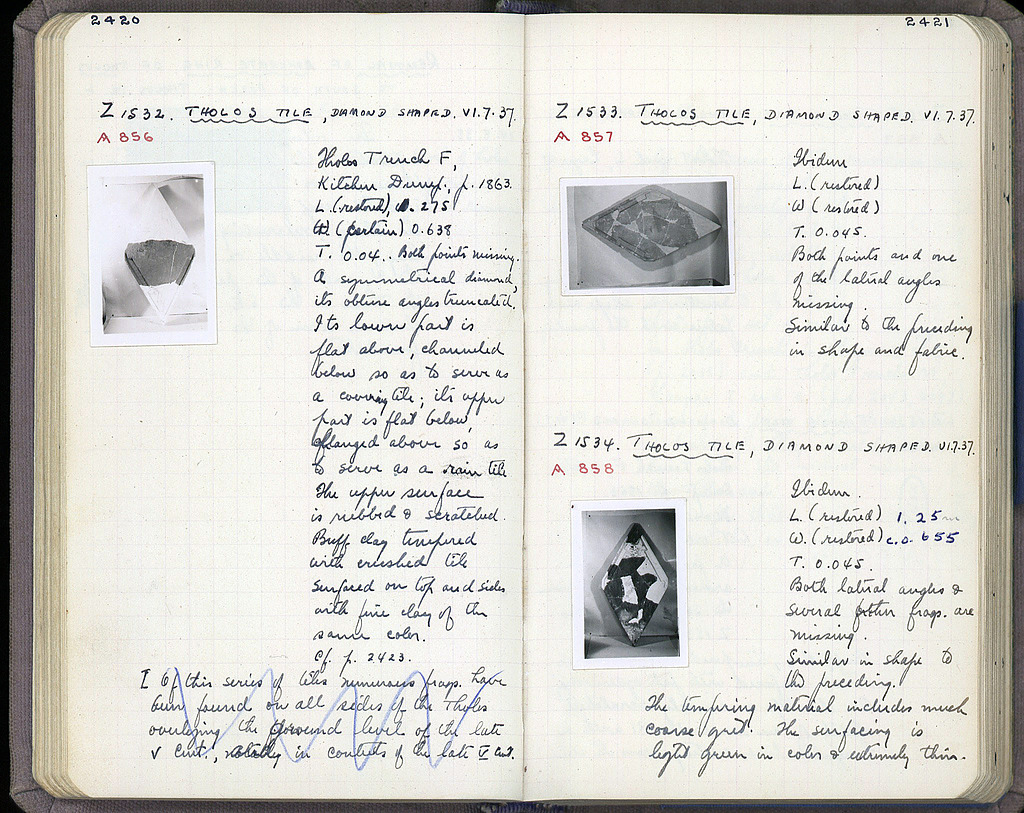 2420
Z 1532. THOLOS TILE, DIAMOND SHAPED. VI.7.37.
A 856
Tholos Trench F,
Kitchen Dump, p. 1863.
L. (restored), 275
W (certain) 0.638
T. 0.04. Both points missing.
A symmetrical diamond,
its obtuse angles truncated.
Its lower part is
flat above, channeled
below so as to serve as
a covering tile; its upper
part is flat below,
flanged above so as
to serve as a rain tile
The upper surface
is rubbed & scratched.
Buff clay tempered
with crushed tile
surfaced on top and sides
with fine clay of the
same color.
Cf. p. 2423.
I Of this series of tiles numerous frags. have
been found on all sides of the Tholos
overlying the ground level of the late
V cent., notably in contexts of the late IV cent.
2421
Z 1533. THOLOS TILE, DIAMOND SHAPED. VI.7.37.
A 857
Ibidem
L. (restored)
W (restored)
T. 0.045.
Both points and one
of the lateral angles
missing.
Similar to the preceding
in shape and fabric.
Z 1534. THOLOS TILE, DIAMOND SHAPED. VI.7.37.
A 858
Ibidem.
L. (restored) 1.25m
W. (restored) c.0.655
T. 0.045.
Both lateral angles &
several other frags. are
missing.
Similar in shape to
the preceding.
The tempering material includes much
coarse grit. The surfacing is
light green in color & extremely thin.